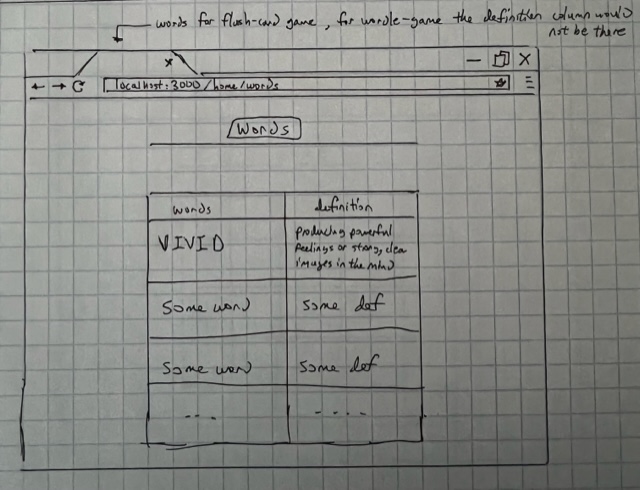 words for flash-card game, for wordle-game the definition column would
not be there
x
localhost:3000/home/words
Words
words definition
VIVID
producing powerful
feelings or strong, clea
images in the mind
Some word some def
Some word Some def
... ....